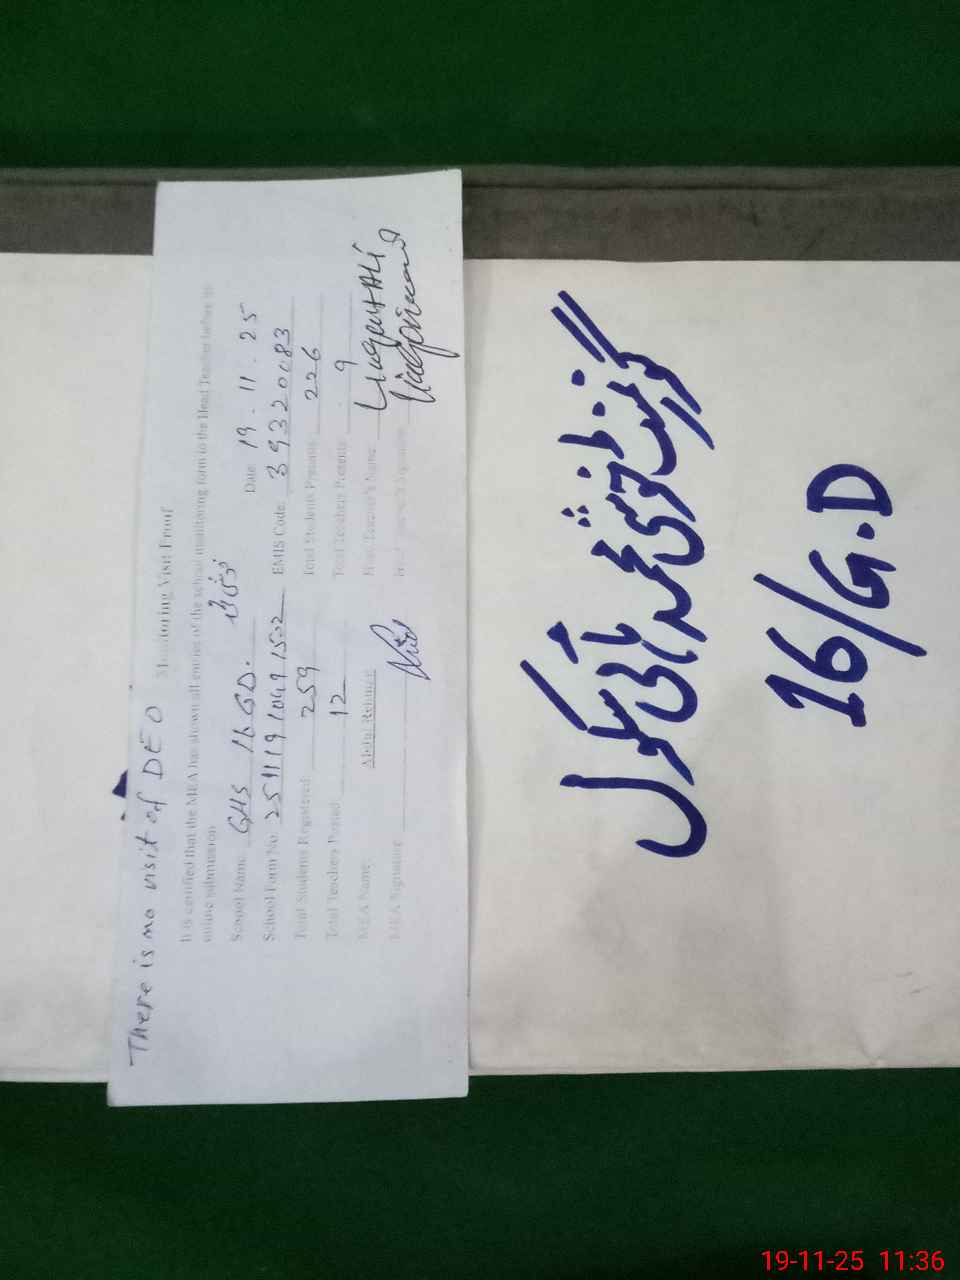 There is no visit of DEO
Monitoring Visit Proof
It is certified that the MEA has shown all entries of the school monitoring form to the Head Teacher before its
online submission
Date 19.11.25
School Name GHS 16 GD.
School Form No. 25111910491502 EMIS Code: 39320083
Total Students Registered: 259 Total Students Presents: 226
Total Teachers Posted: 12 Total Teachers Presents: 9
MEA Name: Abdul Rehman Head Teacher's Name: Liaqat ALi
MEA Signature Head Teacher's Signature
گورنمنٹ ہائی سکول
16/G.D
19-11-25 11:36